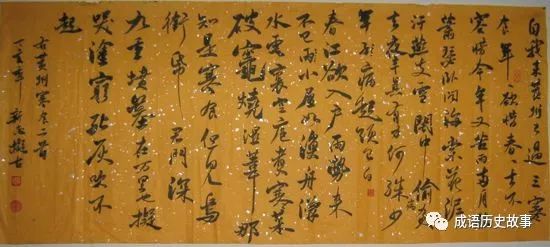 自我來黃州已過三寒
食年〻欲惜春〻去不
容惜今年又苦雨兩月
蕭瑟卧聞海棠花泥
汙燕支雪闇中偷負
去夜半真有力何殊少
年病起頭已白
春江欲入户雨勢來
不已雨小屋如漁舟濛〻
水雲裏空庖煮寒菜
破竈燒濕葦那
知是寒食但見烏
銜帋 君門深
九重墳墓在万里也擬
哭塗窮死灰吹不
起
右黃州寒食二首
丁亥年
成语历史故事